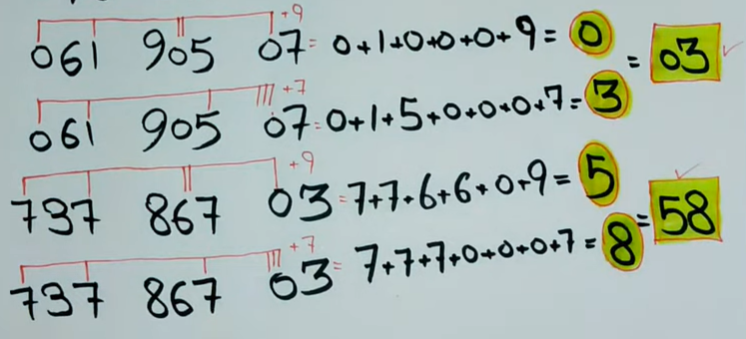 +9
061 905 07 = 0+1+0+0+0+9 = 0
= 03
+7
061 905 07 = 0+1+5+0+0+0+7 = 3
+9
737 867 03 = 7+7+6+6+0+9 = 5
= 58
+7
737 867 03 = 7+7+7+0+0+0+7 = 8